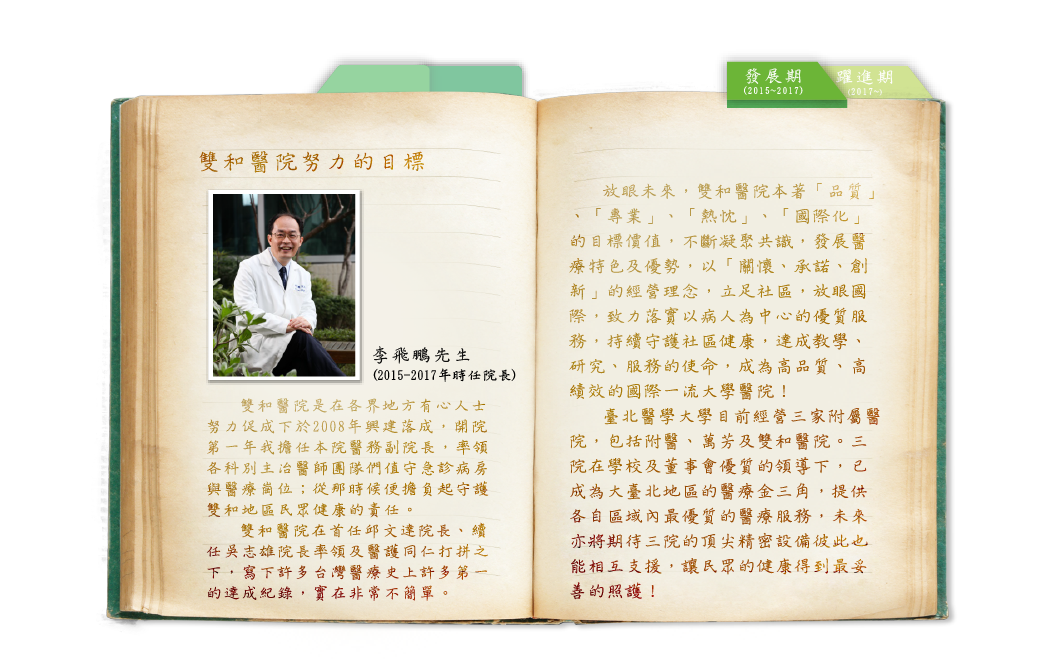 發展期
(2015~2017)
躍進期
(2017~)
雙和醫院努力的目標
李飛鵬先生
(2015-2017年時任院長)
雙和醫院是在各界地方有心人士
努力促成下於2008年興建落成，開院
第一年我擔任本院醫務副院長，率領
各科別主治醫師團隊們值守急診病房
與醫療崗位；從那時候便擔負起守護
雙和地區民眾健康的責任。
雙和醫院在首任邱文達院長、續
任吳志雄院長率領及醫護同仁打拼之
下，寫下許多台灣醫療史上許多第一
的達成紀錄，實在非常不簡單。
放眼未來，雙和醫院本著「品質」
、「專業」、「熱忱」、「國際化」
的目標價值，不斷凝聚共識，發展醫
療特色及優勢，以「關懷、承諾、創
新」的經營理念，立足社區，放眼國
際，致力落實以病人為中心的優質服
務，持續守護社區健康，達成教學、
研究、服務的使命，成為高品質、高
績效的國際一流大學醫院！
臺北醫學大學目前經營三家附屬醫
院，包括附醫、萬芳及雙和醫院。三
院在學校及董事會優質的領導下，已
成為大臺北地區的醫療金三角，提供
各自區域內最優質的醫療服務，未來
亦將期待三院的頂尖精密設備彼此也
能相互支援，讓民眾的健康得到最妥
善的照護！